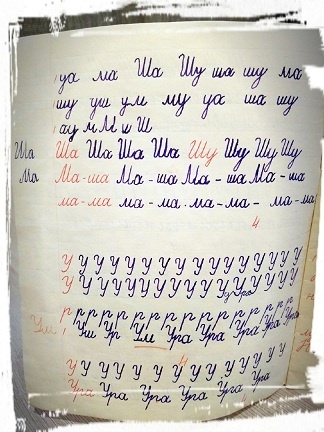 уа ма Ша Шу ша шу ма
шу уш ум му уа ша шу
ау м М и Ш
Ша Ша Ша Ша Ша Шу Шу Шу Шу
Ма Ма-ша Ма-ша Ма-ша Ма-ша
ма-ма ма-ма. ма-ма- ма-ма
4
У У У У У У У У У У У У У У У
У У У У У У У У У У У У У У
р р р р р р р р р р р р р р
Ум Уш Ур Ум Ура Ура Ура Ура
4
У У У У У У У У У У У У
Ура Ура Ура Ура Ура Ура